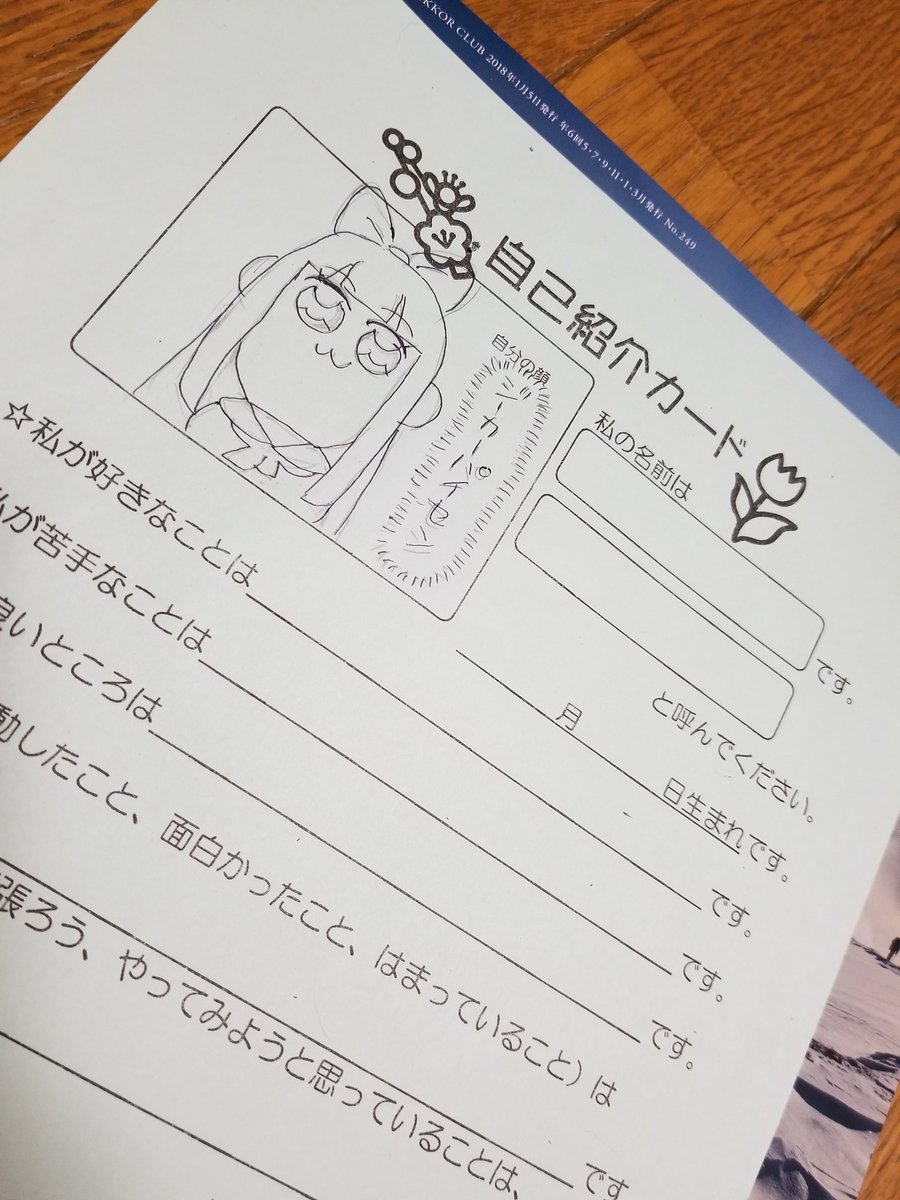 KKOR CLUB 2018年1月5日発行 年6回5・7・9・11・1・3月発行 No.249
自己紹介カード
自分の顔
シーカーパイセン
私の名前は
です。
と呼んでください。
月 日生まれです。
☆私が好きなことは です。
私が苦手なことは です。
良いところは です。
動したこと、面白かったこと、はまっていること)は
です
張ろう、やってみようと思っていることは、